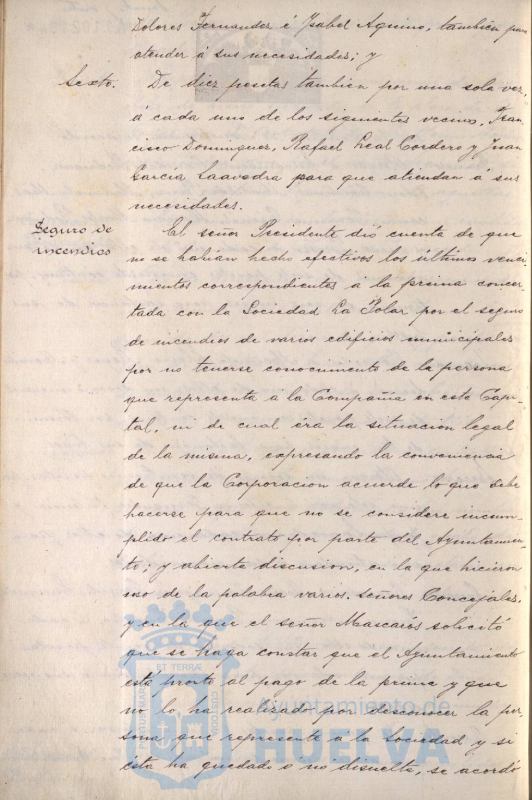 Dolores Fernandez é Ysabel Aquino, tambien para
atender á sus necesidades; y
Sexto. De diez pesetas tambien por una sola vez,
á cada uno de los siguientes vecinos, Fran
cisco Dominguez, Rafael Leal Cordero y Juan
García Saavedra para que atiendan á sus
necesidades.
Seguro de
incendios
El señor Presidente dió cuenta de que
no se habían hecho efectivos los últimos venci
mientos correspondientes á la prima concer
tada con la Sociedad La Polar por el seguro
de incendios de varios edificios municipales
por no tenerse conocimiento de la persona
que representa á la Compañía en esta Capi-
tal, ni de cual éra la situacion legal
de la misma, expresando la conveniencia
de que la Corporacion acuerde lo que debe
hacerse para que no se considere incum
plido el contrato por parte del Ayuntamien
to; y abierta discusion, en la que hicieron
uso de la palabra varios señores Concejales,
y en la que el señor Mascarós solicitó
que se haga constar que el Ayuntamiento
está pronto al pago de la prima y que
no lo ha realizado por desconocer la per
sona que represente á la Sociedad y si
ésta ha quedado o no disuelta, se acordó
PORTUS MARIS ET TERRÆ CUSTODIA
Ayuntamiento de
HUELVA